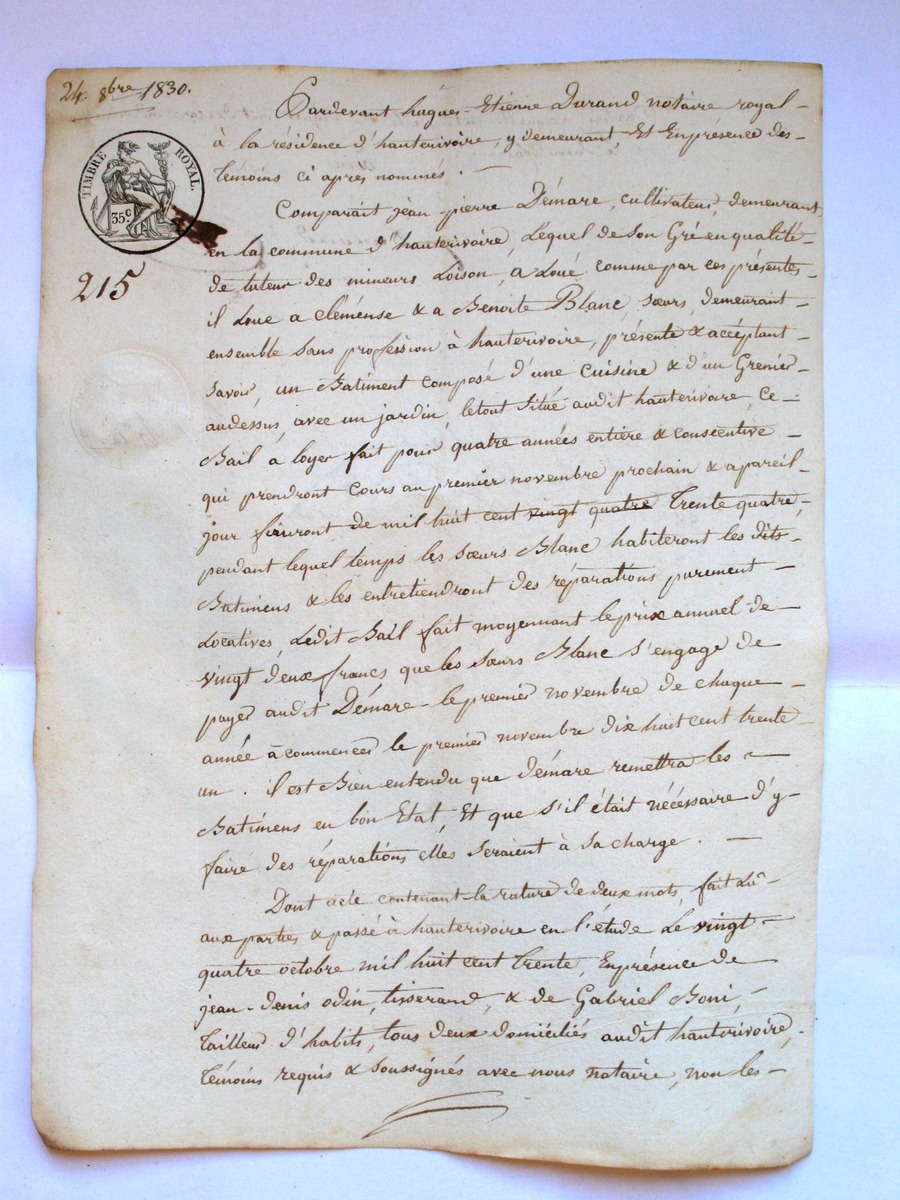 24. 8bre 1830.
TIMBRE ROYAL.
35c
215
Pardevant hugues-Etienne Durand notaire royal-
à la résidence d'hauterivoire, y demeurant, Et Enprésence des-
témoins ci après nommés. —
Comparait jean pierre Démare, cultivateur, demeurant
en la commune d'hauterivoire, Lequel de son Gré en qualité-
de tuteur des mineurs Loison, à Loué comme par ces présentes-
il Loue a clémense & a Benoite Blanc, sœurs, demeurant-
ensemble sans profession à hauterivoire, présente & accéptant-
savoir, un Batiment composé d'une cuisine & d'un Grenier-
audessus, avec un jardin, letout situé audit hauterivoire, Ce-
Bail à loyer fait pour quatre années entière & consécutive -
qui prendront cours au premier novembre prochain & apareil-
jour finiront de mil huit cent vingt quatre trente quatre,
pendant lequel temps les sœurs Blanc habiteront les dits-
Batimens & les entretiendront des réparations purement -
Locatives, Ledit Bail fait moyennant leprix annuel de-
vingt deux francs que les sœurs Blanc s'engage de
payer audit Démare - le premier novembre de chaque -
année à commencer le premier novembre dix huit cent trente-
un. il est Bien entendu que démare remettra les -
Batimens en bon Etat, Et que s'il était nécessaire d'y-
faire des réparations elles seraient à sa charge. —
Dont acte contenant la rature de deux mots, fait Lû-
aux parties & passé à hauterivoire en l'étude Le vingt-
quatre octobre mil huit cent trente, Enprésence de
jean-denis odin, tisserand, & de Gabriel Boni, -
tailleur d'habits, tous deux domiciliés audit hauterivoire, -
témoins requis & soussignés avec nous notaire, non les-